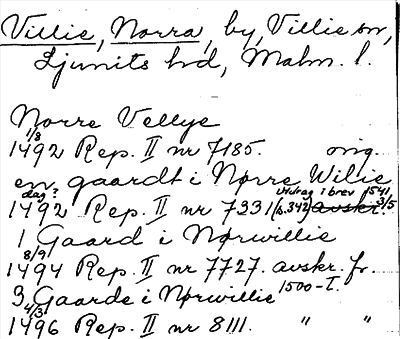 Villie, Norra, by, Villie sn,
Ljunits hd, Malm. l.
Norre Vellye
1/8
1492 Rep. II nr 7185. orig.
en gaardt i Nørre Wilie
dag? utdrag i brev 1541
1492 Rep. II nr 7231 (s. 342) avskr. 3/5
1 Gaard i Nørwillie
8/9
1494 Rep. II nr 7727. avskr. fr.
3 Gaarde i Nørwillie 1500-t.
4/3
1496 Rep. II nr 8111. " "